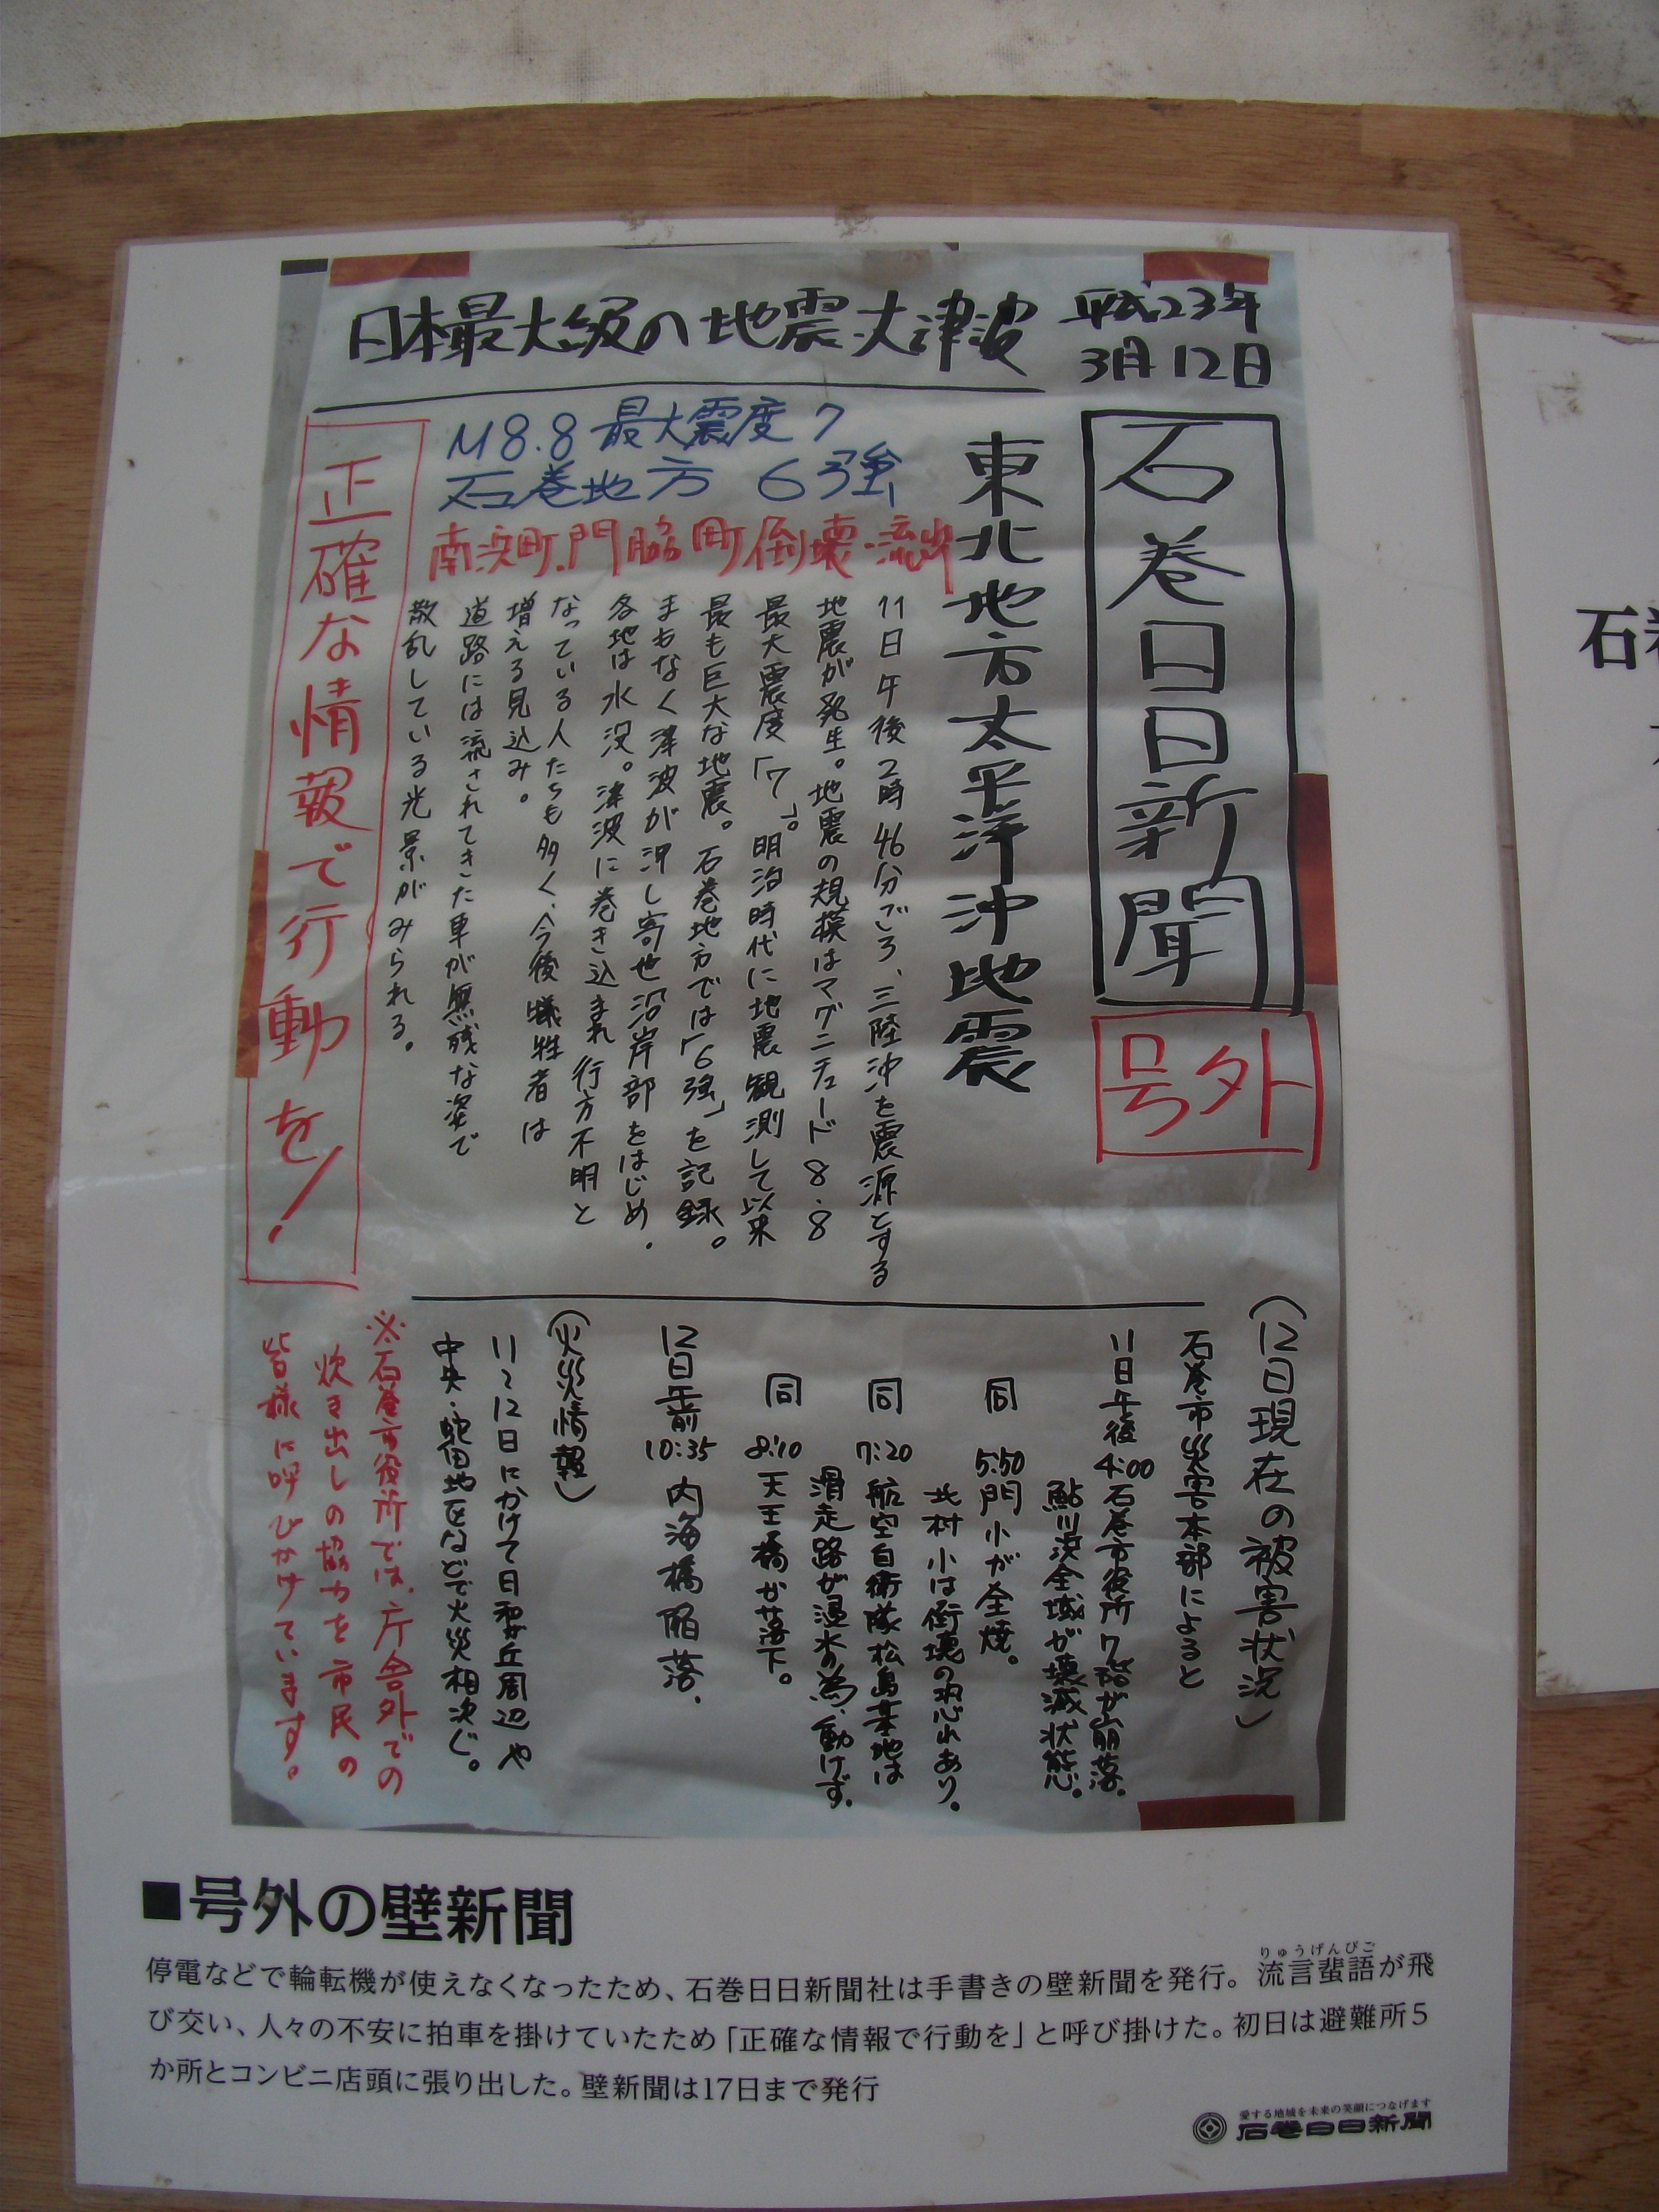 日本最大級の地震・大津波
平成23年
3月12日
石巻日日新聞
号外
東北地方太平洋沖地震
M8.8 最大震度7
石巻地方 6強
南浜町、門脇町倒壊・流出
11日午後2時46分ごろ、三陸沖を震源とする
地震が発生。地震の規模はマグニチュード8.8
最大震度「7」。明治時代に地震観測して以来
最も巨大な地震。石巻地方では「6強」を記録。
まもなく津波が押し寄せ沿岸部をはじめ、
各地は水没。津波に巻き込まれ行方不明と
なっている人たちも多く、今後犠牲者は
増える見込み。
道路には流されてきた車が無残な姿で
散乱している光景がみられる。
正確な情報で行動を!
(12日現在の被害状況)
石巻市災害本部によると
11日午後4:00石巻市役所7階が崩落。
鮎川浜全域が壊滅状態。
同 5:50門小が全焼。
北村小は倒壊の恐れあり。
同 7:20航空自衛隊松島基地は
滑走路が浸水の為、動けず。
同 8:10天王橋が落下。
12日午前10:35内海橋陥落、
(火災情報)
11〜12日にかけて日和が丘周辺や
中央・蛇田地区などで火災相次ぐ。
※石巻市役所では、庁舎外での
炊き出しの協力を市民の
皆様に呼びかけています。
■号外の壁新聞
停電などで輪転機が使えなくなったため、石巻日日新聞社は手書きの壁新聞を発行。流言蜚語が飛
りゅうげんびご
び交い、人々の不安に拍車を掛けていたため「正確な情報で行動を」と呼び掛けた。初日は避難所5
か所とコンビニ店頭に張り出した。壁新聞は17日まで発行
愛する地域を未来の笑顔につなげます
石巻日日新聞
石